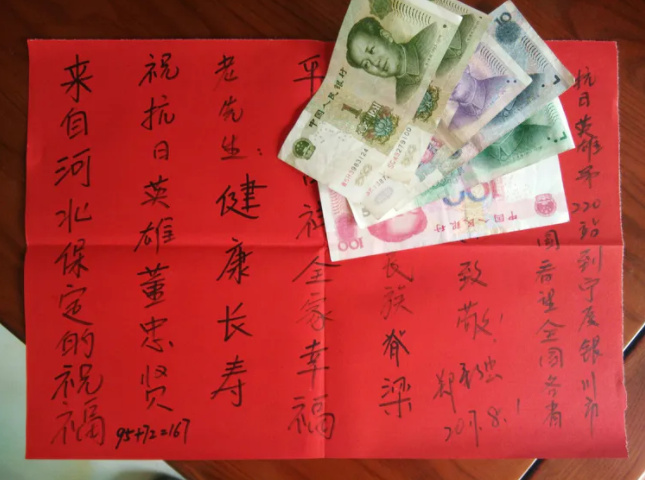 来自河北保定的祝福
祝抗日英雄董忠贤
95+72=167
老先生:健康长寿
平
祥全家幸福
民族脊梁
致敬!
郑
2017.8.1
看望全国各省
抗日英雄第220站到宁夏银川市
中国人民银行
1
10
中国人民银行
100
100